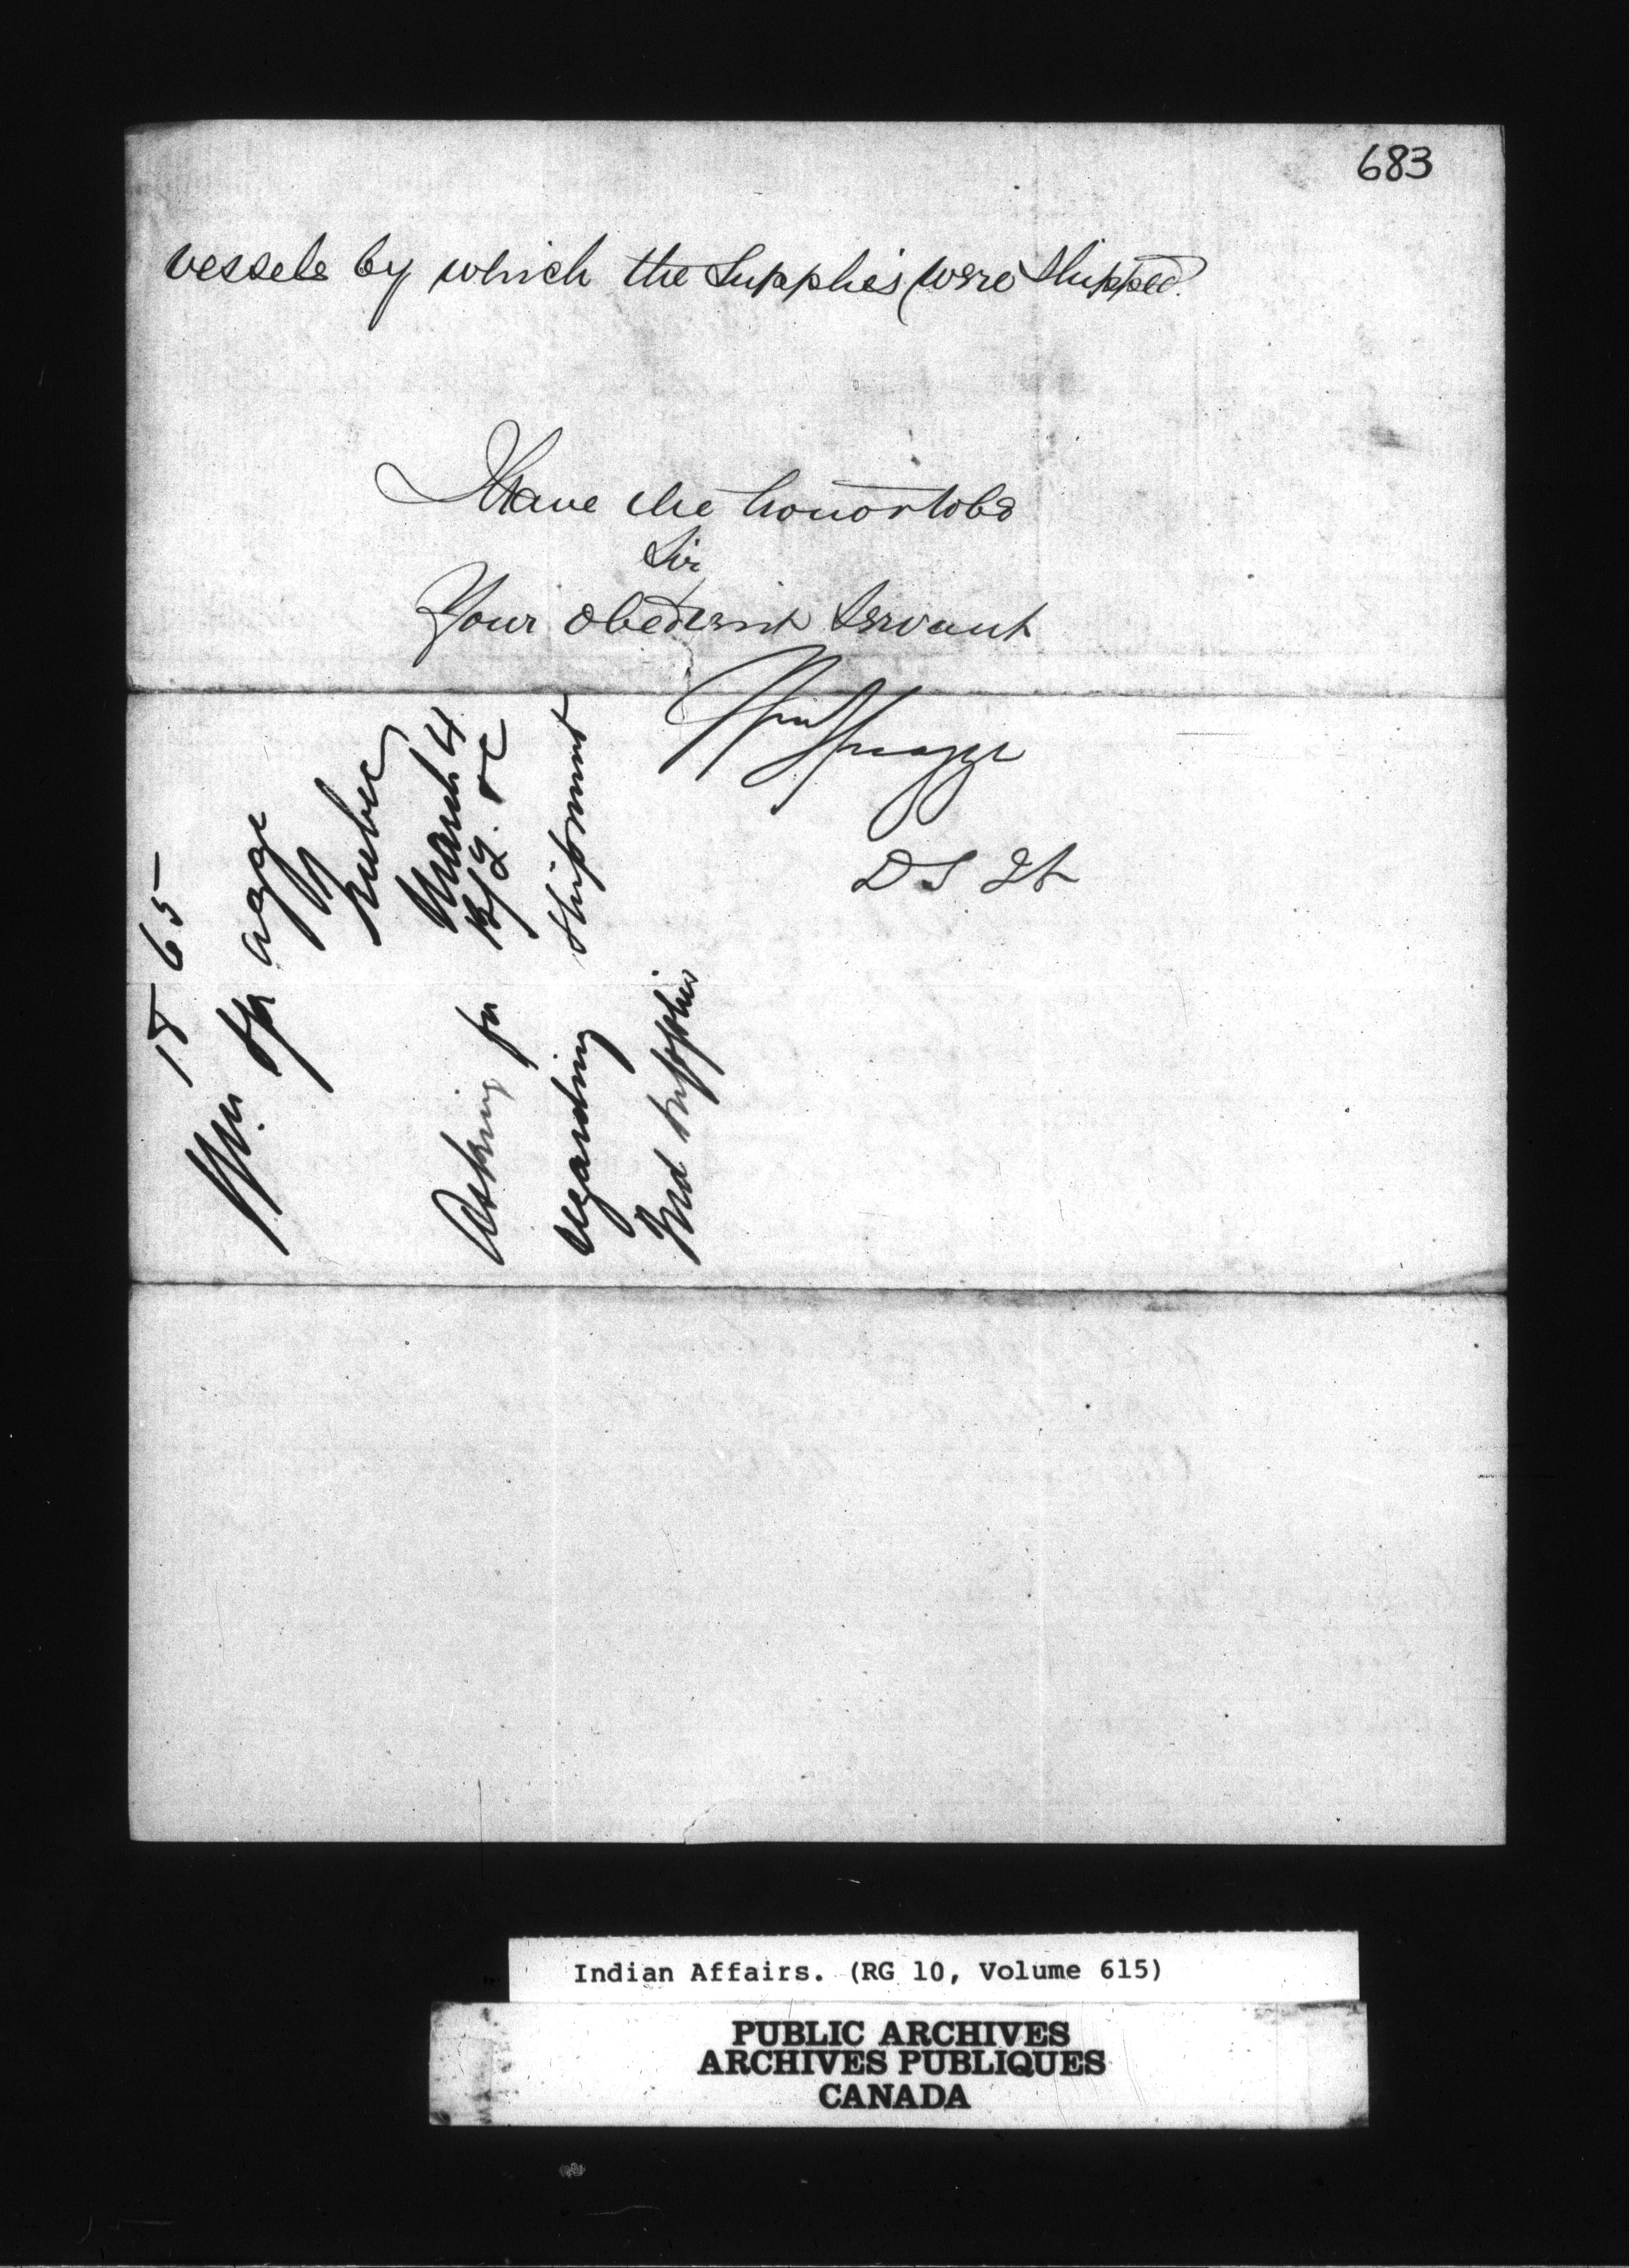 683
vessels by which the Supplies were Shipped.
I Have the honor to be
Sir
Your obedient Servant
Wm Spragge
D S I A
1865
Wm. Spragge
Quebec
March 4
Asking for B/L. &c
regarding shipment
Ind supplies
Indian Affairs. (RG 10, Volume 615)
PUBLIC ARCHIVES
ARCHIVES PUBLIQUES
CANADA